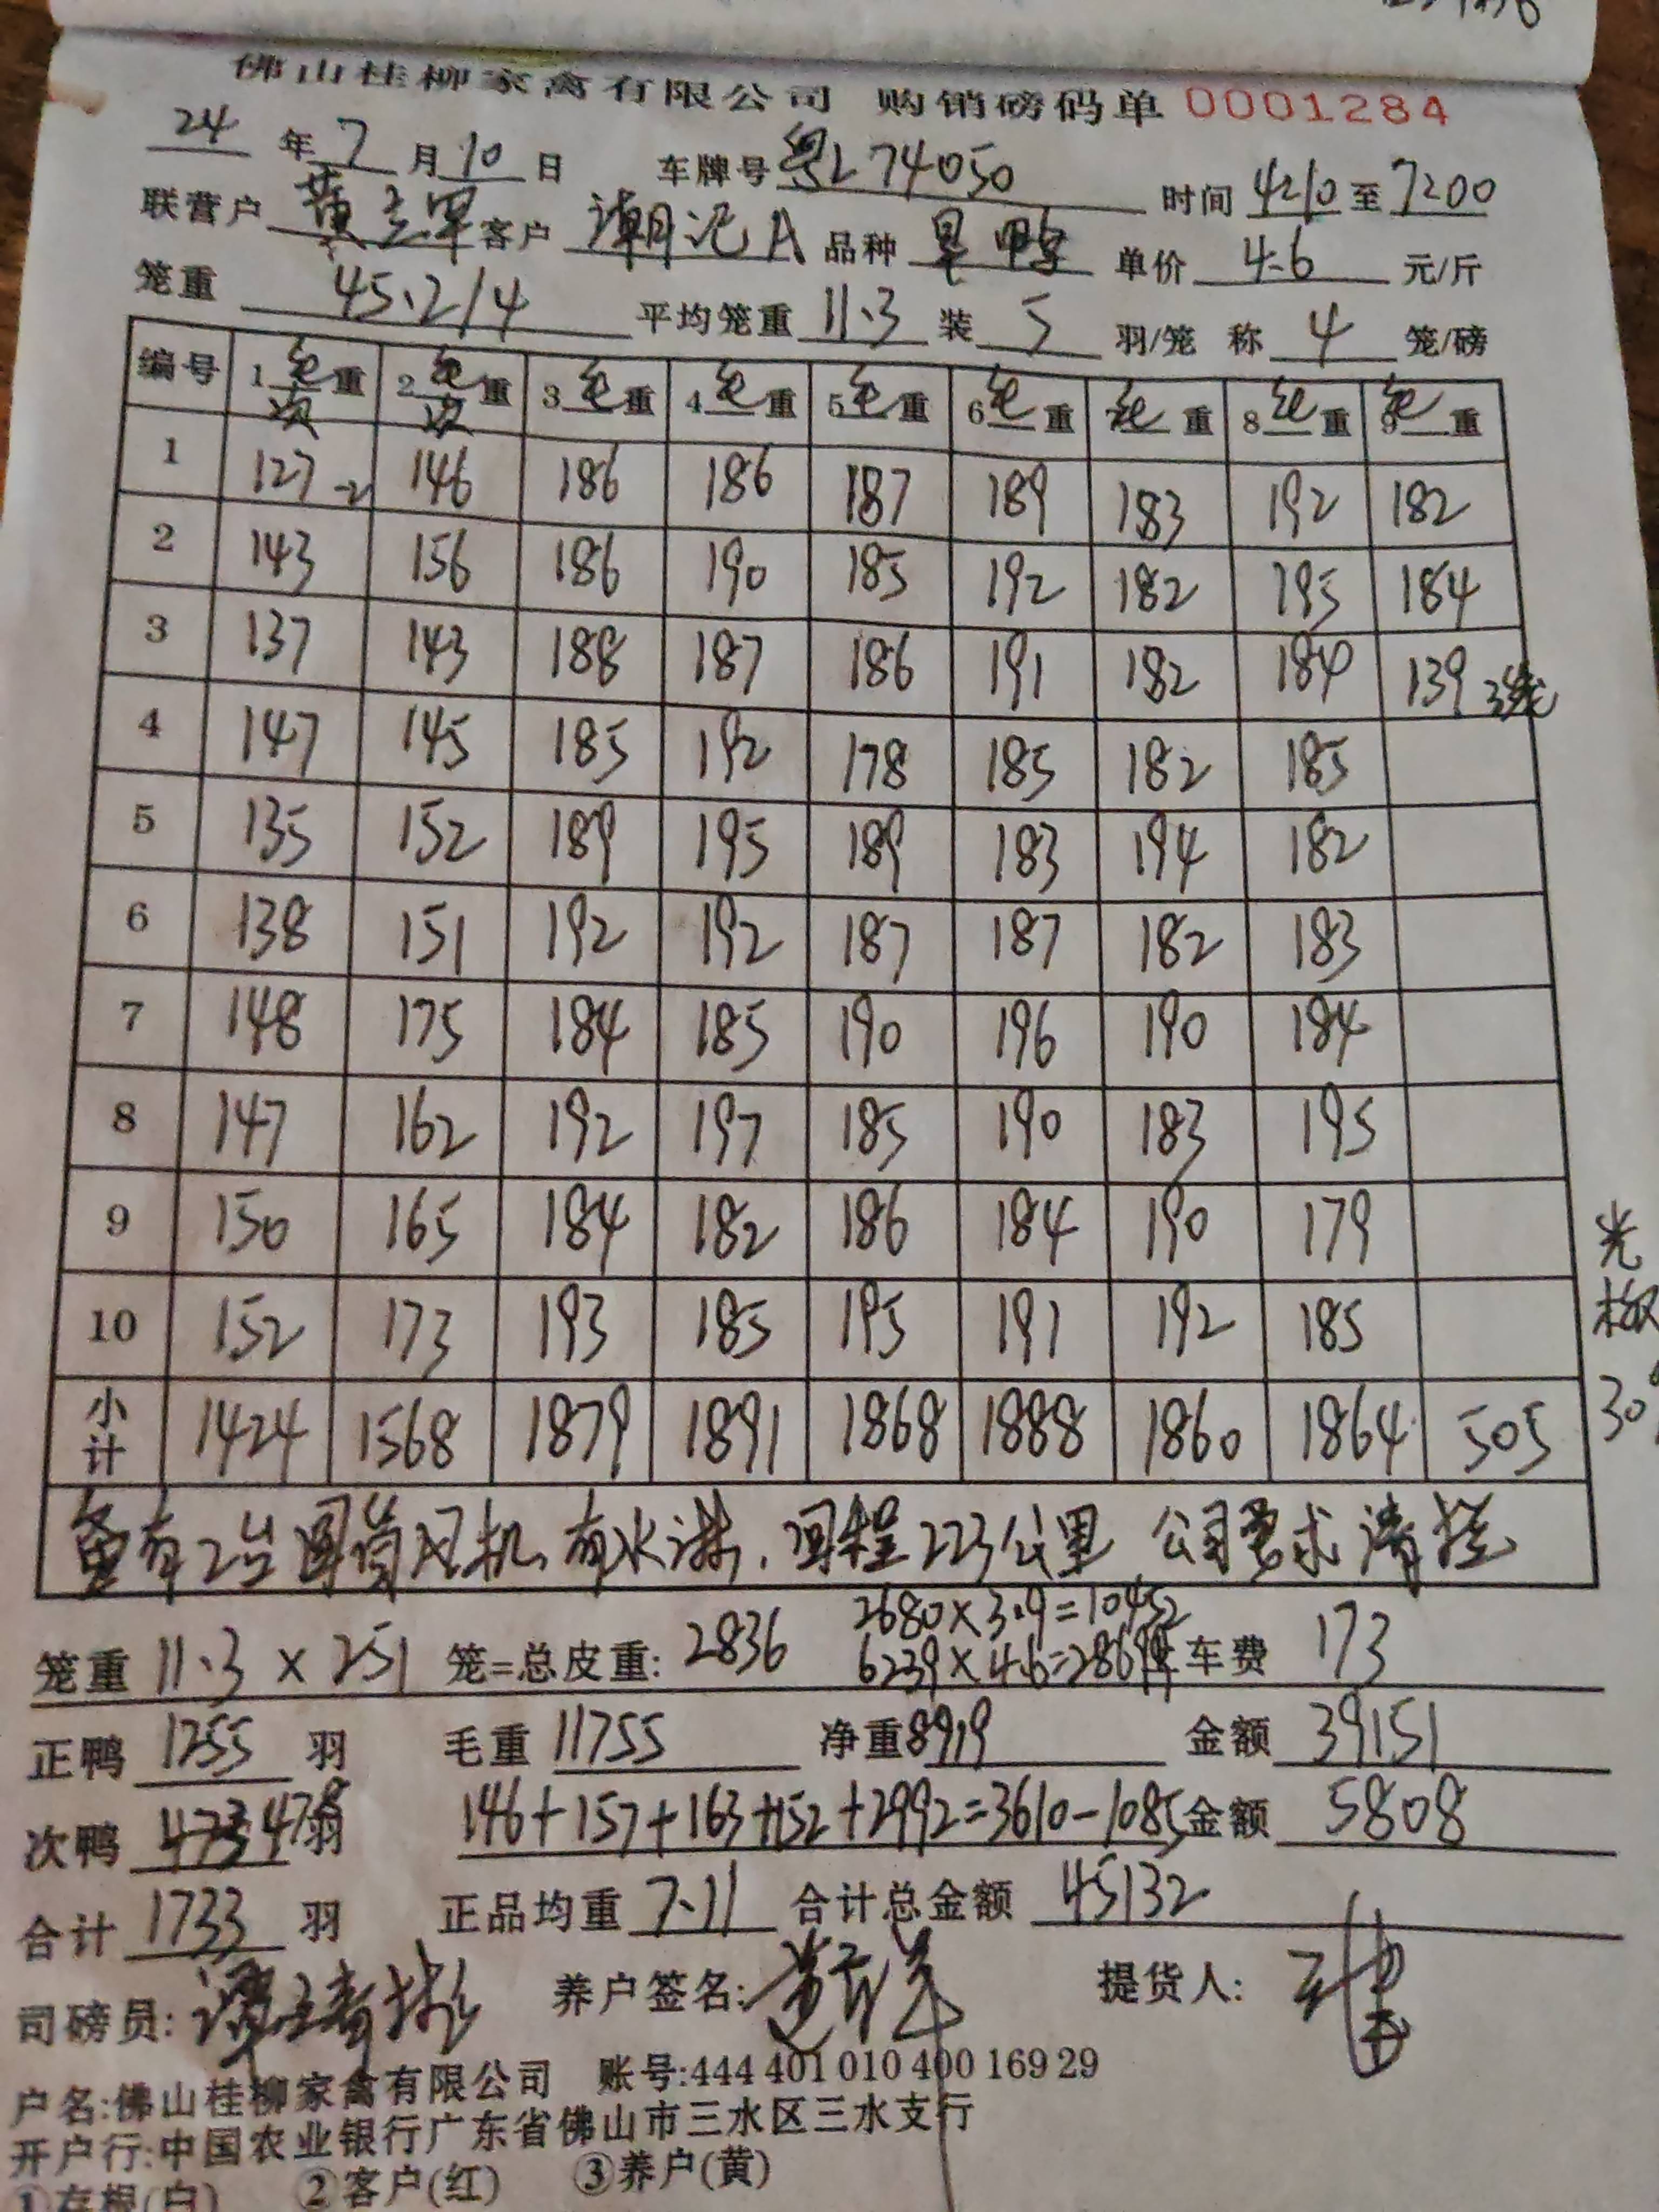 佛山桂柳家禽有限公司 购销磅码单 0001284
24 年 7 月 10 日 车牌号 粤L 74050 时间 4210 至 7200
联营户 黄 客户 潮记A 品种 鸭 单价 4.6 元/斤
笼重 45.2/4 平均笼重 11.3 装 5 羽/笼 称 4 笼/磅
编号 1 毛重 次 2 毛重 次 3 毛重 4 毛重 5 毛重 6 毛重 毛重 8 毛重 9 毛重
1 127 -2 146 186 186 187 189 183 192 182
2 143 156 186 190 185 192 182 195 184
3 137 143 188 187 186 191 182 184 139
4 147 145 185 192 178 185 182 185
5 135 152 189 195 189 183 194 182
6 138 151 192 192 187 187 182 183
7 148 175 184 185 190 196 190 184
8 147 162 192 197 185 190 183 195
9 150 165 184 182 186 184 190 179
10 152 173 193 185 195 191 192 185
小计 1424 1568 1879 1891 1868 1888 1860 1864 505
有2台圆筒风机、有水淋、回程223公里 公司要求清
2680×3.9=10452
笼重 11.3 × 251 笼=总皮重: 2836 6239×4.6=28699 车费 173
正鸭 1255 羽 毛重 11755 净重 8919 金额 39151
次鸭 478 羽 146+157+163+152+2992=3610-1085 金额 5808
合计 1733 羽 正品均重 7.11 合计总金额 45132
司磅员: 养户签名: 提货人:
户名:佛山桂柳家禽有限公司 账号:444 401 010 400 169 29
开户行:中国农业银行广东省佛山市三水区三水支行
①存根(白) ②客户(红) ③养户(黄)